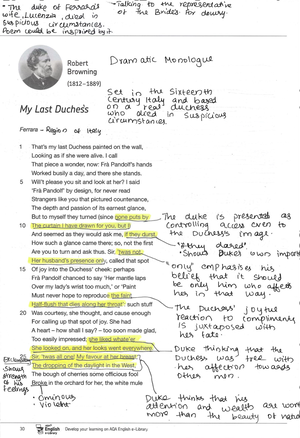 • The duke of Ferrara's
wife, Lucrezia, died in
suspicious circumstances.
Poem could be inspired by it.
Talking to the representative
of the Brides for dowry.
Robert
Browning
(1812–1889)
Dramatic Monologue
Set in the Sixteenth
Century Italy and based
on a "real" duchess
who died in suspicious
circumstances.
My Last Duchess
Ferrara – Region of Italy
1 That's my last Duchess painted on the wall,
Looking as if she were alive. I call
That piece a wonder, now: Frà Pandolf's hands
Worked busily a day, and there she stands.
5 Will't please you sit and look at her? I said
'Frà Pandolf' by design, for never read
Strangers like you that pictured countenance,
The depth and passion of its earnest glance,
But to myself they turned (since none puts by
10 The curtain I have drawn for you, but I)
And seemed as they would ask me, if they durst,
How such a glance came there; so, not the first
Are you to turn and ask thus. Sir, 'twas not
Her husband's presence only, called that spot
15 Of joy into the Duchess' cheek: perhaps
Frà Pandolf chanced to say 'Her mantle laps
Over my lady's wrist too much,' or 'Paint
Must never hope to reproduce the faint
Half-flush that dies along her throat': such stuff
20 Was courtesy, she thought, and cause enough
For calling up that spot of joy. She had
A heart – how shall I say? – too soon made glad,
Too easily impressed; she liked whate'er
She looked on, and her looks went everywhere.
25 Sir, 'twas all one! My favour at her breast,
The dropping of the daylight in the West,
The bough of cherries some officious fool
Broke in the orchard for her, the white mule
The duke is presented as
controlling access even to
the Duchess's image.
"if they dared"
• Shows Duke's own import
"only" emphasises his
belief that it should
be only him who affects
her in that way.
The Duchess' joyful
reaction to compliments
is juxtaposed with
her fate.
Duke thinking that the
Duchess was free with
her affection towards
other men.
Shows
strength
of his
feelings
• Ominous
• Violent
Duke thinks that his
attention and wealth are wort
more than the beauty of natu
30 English Develop your learning on AQA English e-Library